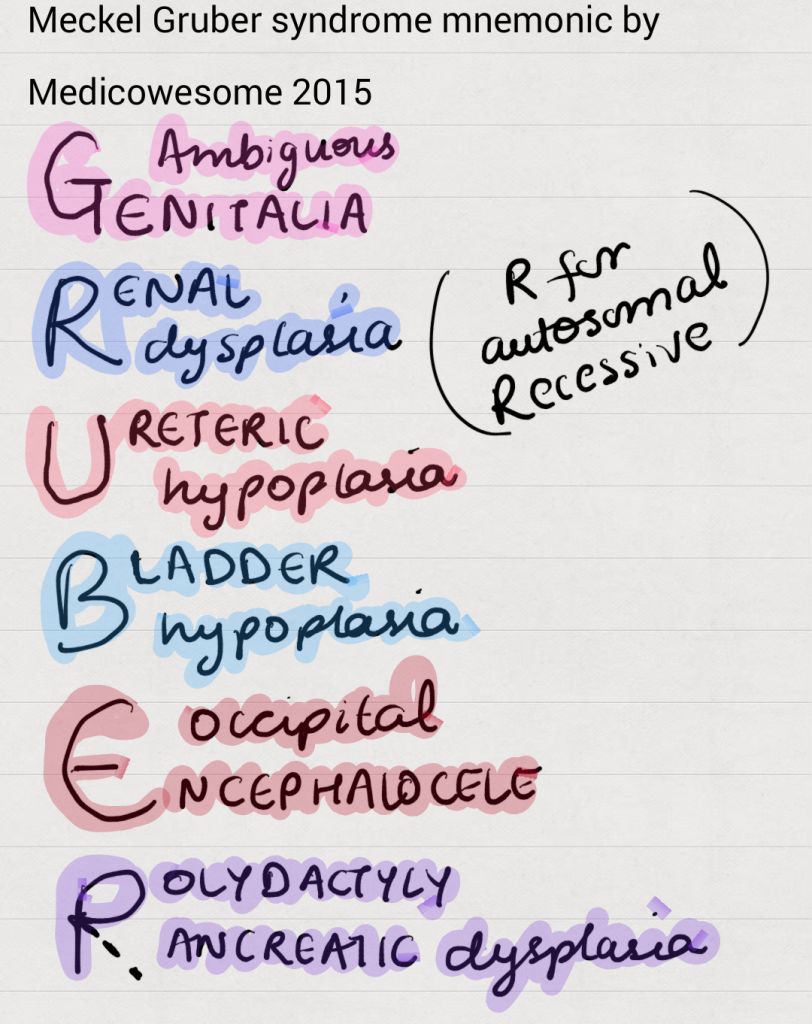 Meckel Gruber syndrome mnemonic by
Medicowesome 2015
Ambiguous
GENITALIA
RENAL
dysplasia
(R for
autosomal
Recessive)
URETERIC
hypoplasia
BLADDER
hypoplasia
occipital
ENCEPHALOCELE
POLYDACTYLY
PANCREATIC dysplasia